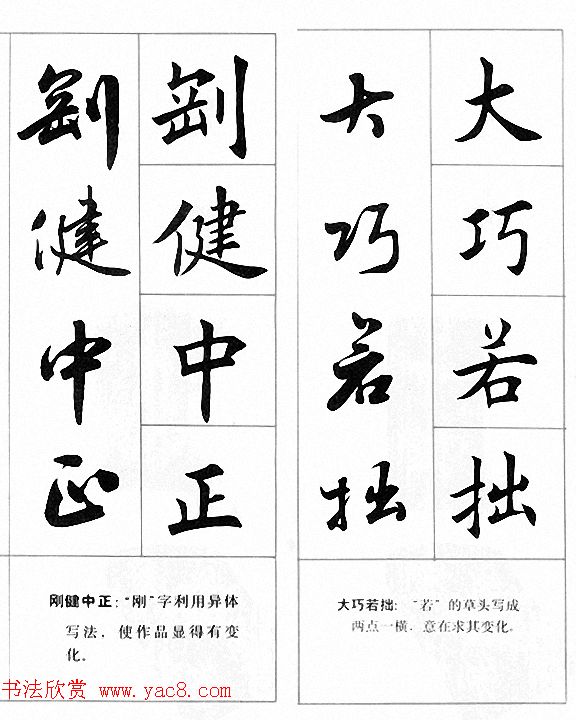 大巧若拙
大巧若拙
大巧若拙: “若”的草头写成
两点一横，意在求其变化。
剛健中正
剛健中正
刚健中正: “刚”字利用异体
写法，使作品显得有变
化。
书法欣赏 www.yac8.com